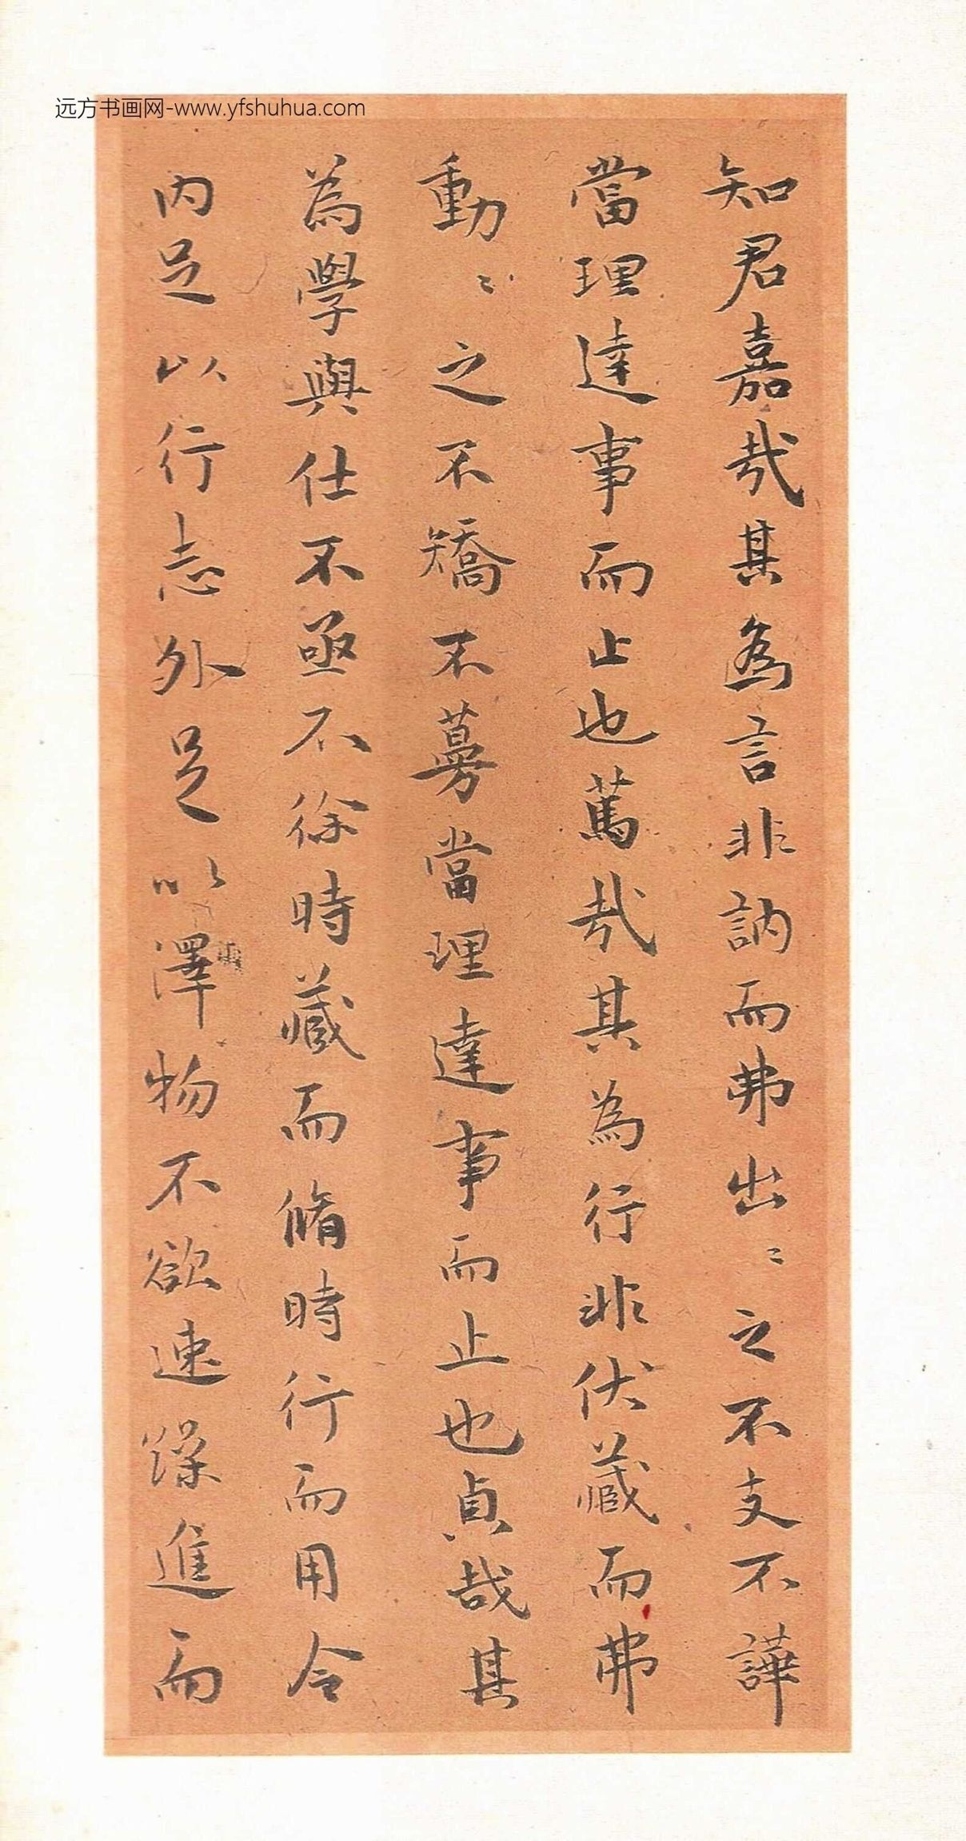 远方书画网-www.yfshuhua.com
知君嘉哉其為言非訥而弗出〻之不支不譁
當理達事而止也篤哉其為行非伏藏而弗
動〻之不矯不蕚當理達事而止也貞哉其
為學與仕不亟不徐時藏而脩時行而用令
内足以行志外足以澤物不欲速躁進而